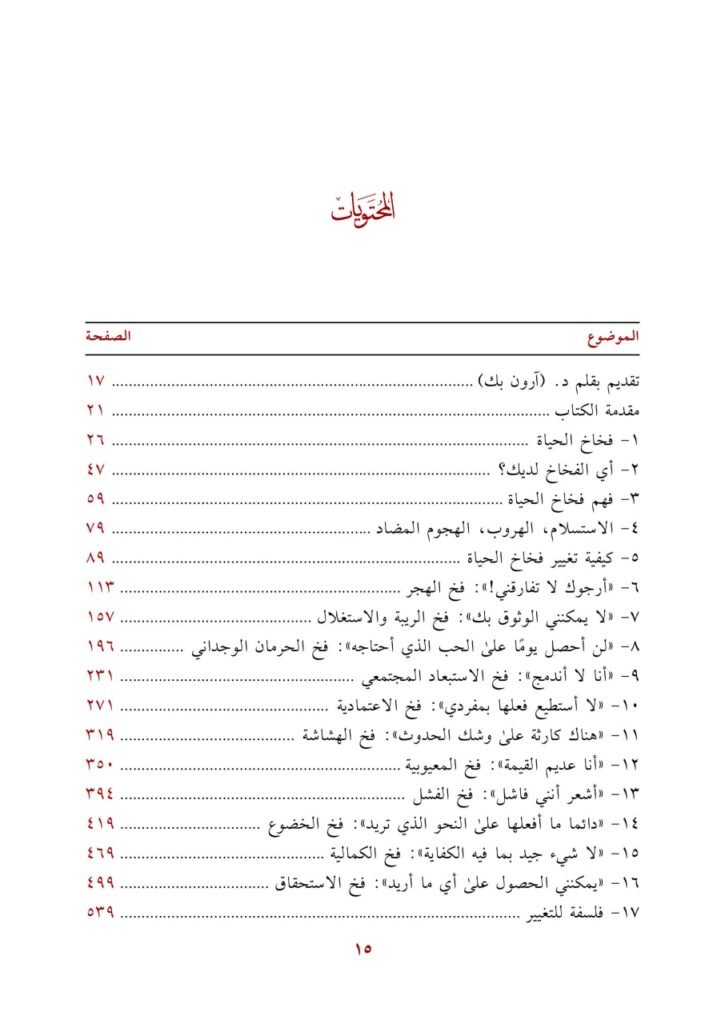 المحتويات
الموضوع الصفحة
تقديم بقلم د. (آرون بك) ........ ١٧
مقدمة الكتاب ........ ٢١
١- فخاخ الحياة ........ ٢٦
٢- أي الفخاخ لديك؟ ........ ٤٧
٣- فهم فخاخ الحياة ........ ٥٩
٤- الاستسلام، الهروب، الهجوم المضاد ........ ٧٩
٥- كيفية تغيير فخاخ الحياة ........ ٨٩
٦- «أرجوك لا تفارقني!»: فخ الهجر ........ ١١٣
٧- «لا يمكنني الوثوق بك»: فخ الريبة والاستغلال ........ ١٥٧
٨- «لن أحصل يومًا علىٰ الحب الذي أحتاجه»: فخ الحرمان الوجداني ........ ١٩٦
٩- «أنا لا أندمج»: فخ الاستبعاد المجتمعي ........ ٢٣١
١٠- «لا أستطيع فعلها بمفردي»: فخ الاعتمادية ........ ٢٧١
١١- «هناك كارثة علىٰ وشك الحدوث»: فخ الهشاشة ........ ٣١٩
١٢- «أنا عديم القيمة»: فخ المعيوبية ........ ٣٥٠
١٣- «أشعر أنني فاشل»: فخ الفشل ........ ٣٩٤
١٤- «دائما ما أفعلها علىٰ النحو الذي تريد»: فخ الخضوع ........ ٤١٩
١٥- «لا شيء جيد بما فيه الكفاية»: فخ الكمالية ........ ٤٦٩
١٦- «يمكنني الحصول علىٰ أي ما أريد»: فخ الاستحقاق ........ ٤٩٩
١٧- فلسفة للتغيير ........ ٥٣٩
١٥